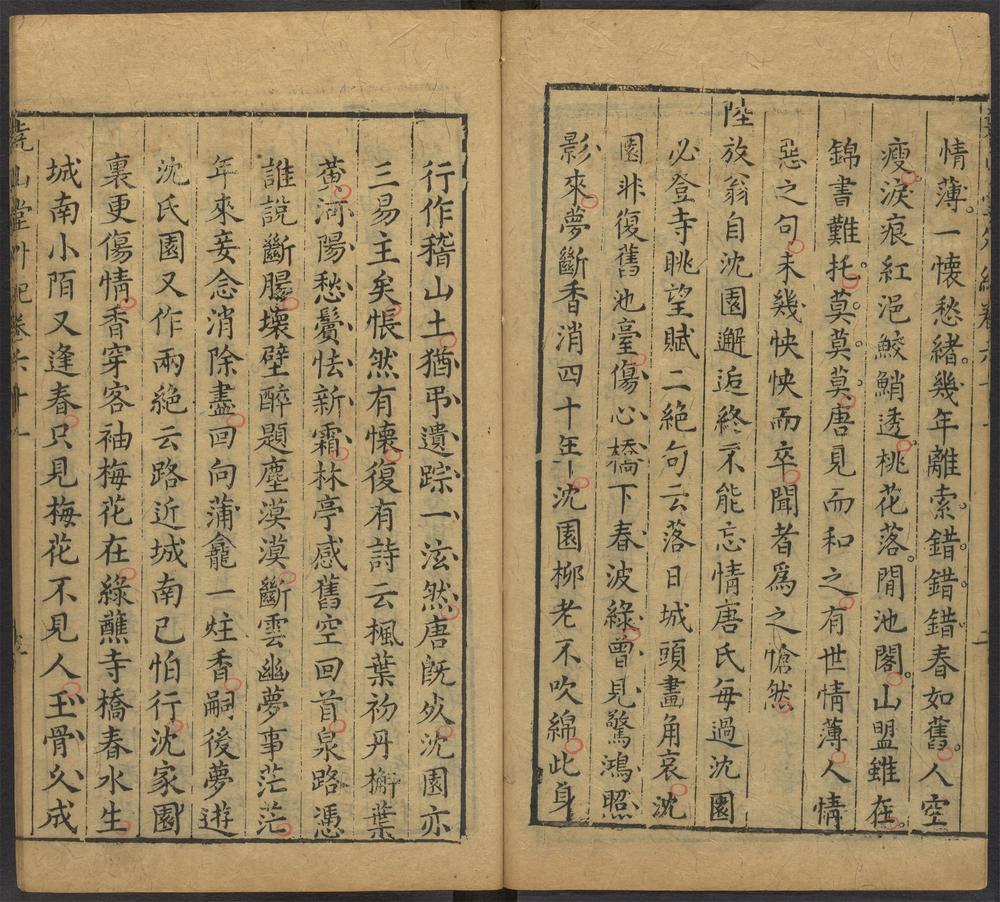 情薄。一懷愁緒。幾年離索。錯錯錯。春如舊。人空
瘦。淚痕紅浥鮫鮹透。桃花落。閒池閣。山盟雖在。
錦書難托。莫。莫。莫。唐見而和之有世情薄人情
惡之句未幾怏怏而卒聞者為之愴然
陸放翁自沈園邂逅終不能忘情唐氏每過沈園
必登寺眺望賦二絕句云落日城頭畫角哀沈
園非復舊池臺傷心橋下春波綠曾見驚鴻照
影來夢斷香消四十年沈園柳老不吹綿此身
行作稽山土猶弔遺踪一泫然唐既歿沈園亦
三易主矣悵然有懷復有詩云楓葉初丹槲葉
黄河陽愁鬢怯新霜林亭感舊空回首泉路憑
誰說斷腸壞壁醉題塵漠漠斷雲幽夢事茫茫
年來妄念消除盡回向蒲龕一炷香嗣後夢遊
沈氏園又作兩絕云路近城南已怕行沈家園
裏更傷情香穿客袖梅花在綠蘸寺橋春水生
城南小陌又逢春只見梅花不見人玉骨久成
堯山堂外紀卷六十一